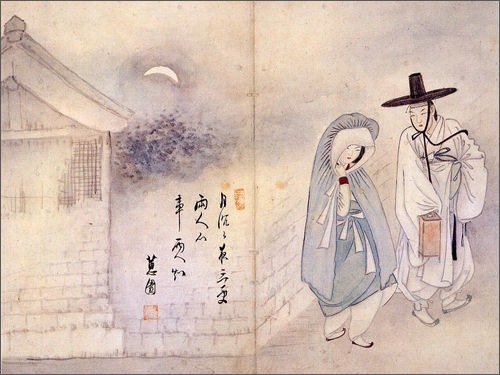 月沈沈夜三更
兩人心
事兩人知
蕙園